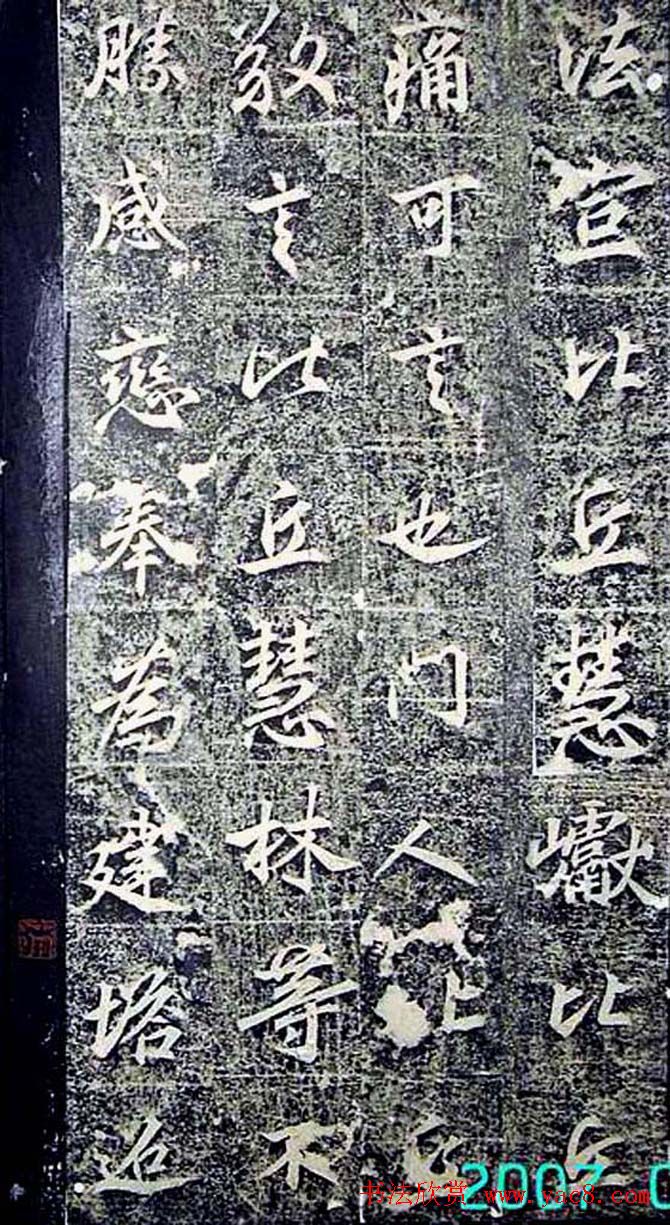 法宣比丘慧巘比丘
痛可言也門人比丘
敬言比丘慧林等不
勝感奉為建塔
2007 0
书法欣赏 www.yac8.com